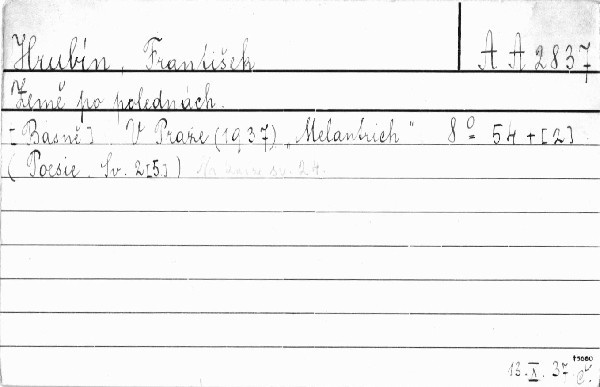 Hrubín, František
A A 2837
Země po polednách.
[Básně] V Praze (1937) „Melantrich" 8° 54 + [2]
(Poesie. Sv. 2[5]) sv. 24.
13. X. 37.